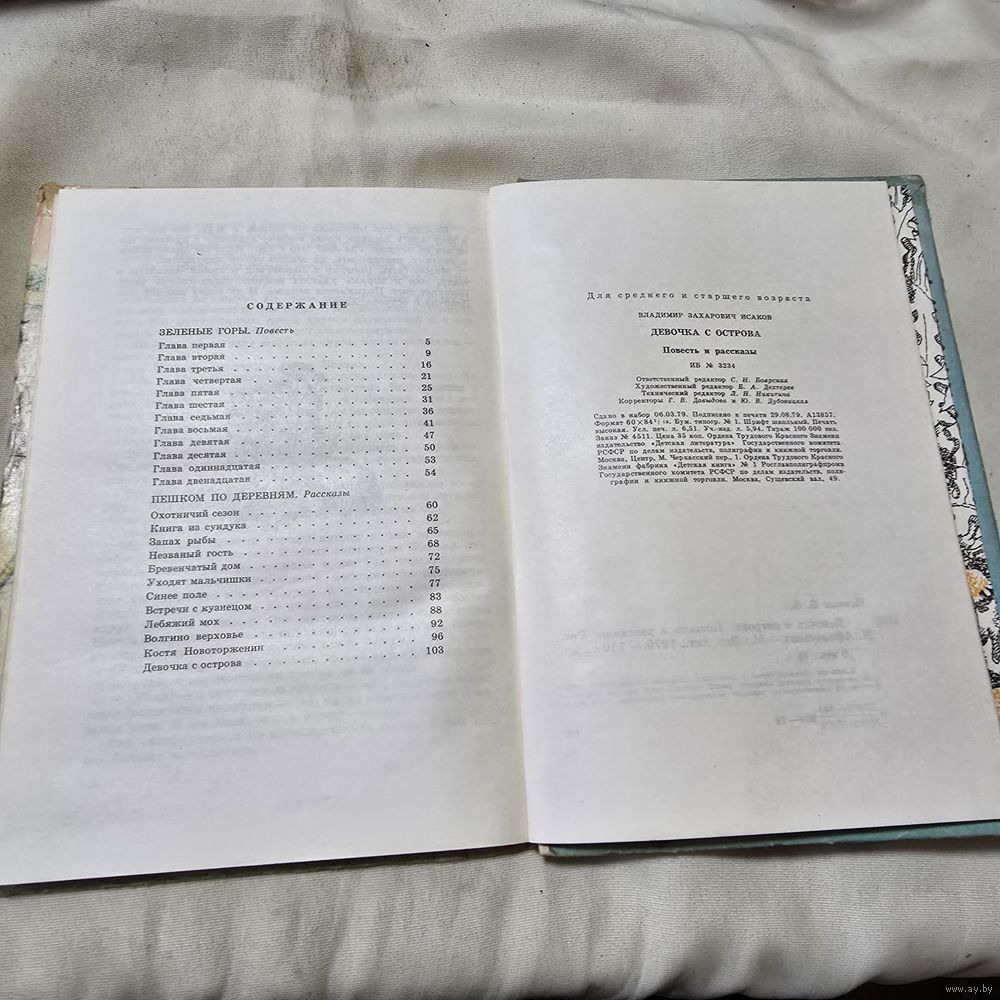 СОДЕРЖАНИЕ
ЗЕЛЕНЫЕ ГОРЫ. Повесть
Глава первая . . . 5
Глава вторая . . . 9
Глава третья . . . 16
Глава четвертая . . . 21
Глава пятая . . . 25
Глава шестая . . . 31
Глава седьмая . . . 36
Глава восьмая . . . 41
Глава девятая . . . 47
Глава десятая . . . 50
Глава одиннадцатая . . . 53
Глава двенадцатая . . . 54
ПЕШКОМ ПО ДЕРЕВНЯМ. Рассказы
Охотничий сезон . . . 60
Книга из сундука . . . 62
Запах рыбы . . . 65
Незваный гость . . . 68
Бревенчатый дом . . . 72
Уходят мальчишки . . . 75
Синее поле . . . 77
Встречи с кузнецом . . . 83
Лебяжий мох . . . 88
Волгино верховье . . . 92
Костя Новоторженин . . . 96
Девочка с острова . . . 103
Для среднего и старшего возраста
ВЛАДИМИР ЗАХАРОВИЧ ИСАКОВ
ДЕВОЧКА С ОСТРОВА
Повесть и рассказы
ИБ № 3234
Ответственный редактор С. Н. Боярская
Художественный редактор Е. А. Дехтерев
Технический редактор Л. Н. Никитина
Корректоры Г. В. Давыдова и Ю. В. Дубовицкая
Сдано в набор 06.03.79. Подписано к печати 29.08.79. А13857.
Формат 60×84¹/₁₆. Бум. типогр. № 1. Шрифт школьный. Печать
высокая. Усл. печ. л. 6,51. Уч.-изд. л. 5,94. Тираж 100 000 экз.
Заказ № 4511. Цена 35 коп. Ордена Трудового Красного Знамени
издательство «Детская литература» Государственного комитета
РСФСР по делам издательств, полиграфии и книжной торговли.
Москва, Центр, М. Черкасский пер., 1. Ордена Трудового Красного
Знамени фабрика «Детская книга» № 1 Росглавполиграфпрома
Государственного комитета РСФСР по делам издательств, поли-
графии и книжной торговли. Москва, Сущевский вал, 49.
www.ay.by